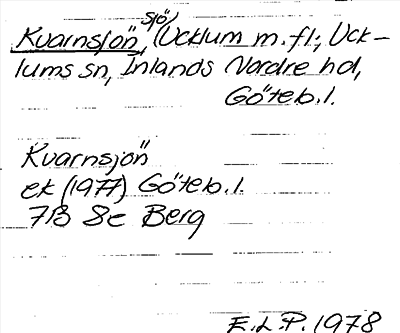 Kvarnsjön, sjö, (Ucklum m.fl; Uck-
lums sn, Inlands Nordre hd,
Göteb.l.
Kvarnsjön
ek (1977) Göteb.l.
7B 8e Berg
E.L.P. 1978